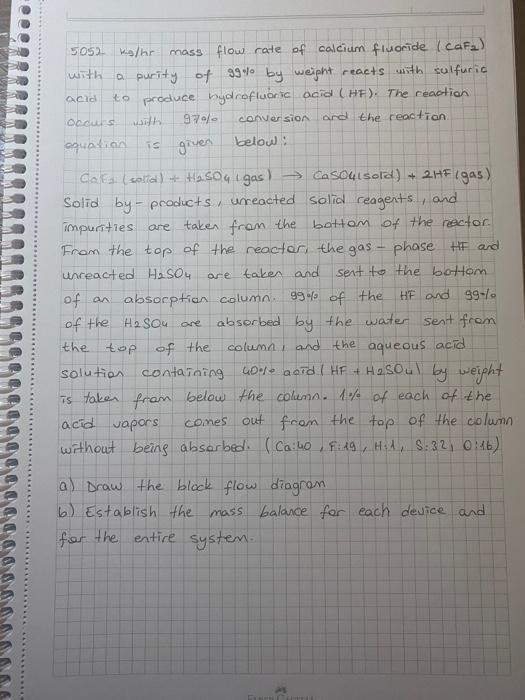 5052 kg/hr mass flow rate of calcium fluoride (CaF2)
with a purity of 99% by weight reacts with sulfuric
acid to produce hydrofluoric acid (HF). The reaction
occurs with 97% conversion and the reaction
equation is given below:
CaF2 (solid) + H2SO4 (gas) → CaSO4(solid) + 2HF (gas)
Solid by-products, unreacted solid reagents, and
impurities are taken from the bottom of the reactor.
From the top of the reactor, the gas-phase HF and
unreacted H2SO4 are taken and sent to the bottom
of an absorption column. 99% of the HF and 99%
of the H2SO4 are absorbed by the water sent from
the top of the column, and the aqueous acid
solution containing 40% acid (HF + H2SO4) by weight
is taken from below the column. 1% of each of the
acid vapors comes out from the top of the column
without being absorbed. (Ca:40, F:19, H:1, S:32, O:16)
a) Draw the block flow diagram
b) Establish the mass balance for each device and
for the entire system.